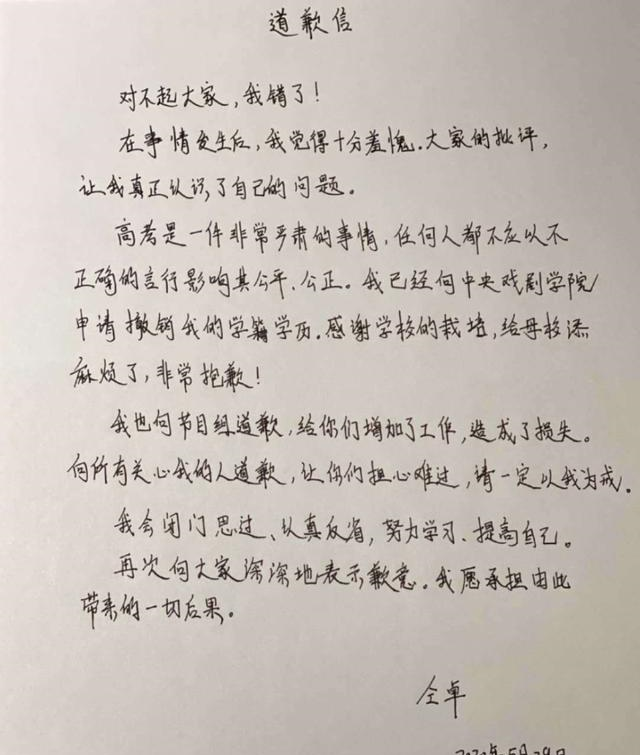 道歉信
对不起大家，我错了！
在事情发生后，我觉得十分羞愧。大家的批评，
让我真正认识了自己的问题。
高考是一件非常严肃的事情，任何人都不应以不
正确的言行影响其公平、公正。我已经向中央戏剧学院
申请撤销我的学籍学历。感谢学校的栽培，给母校添
麻烦了，非常抱歉！
我也向节目组道歉，给你们增加了工作，造成了损失。
向所有关心我的人道歉，让你们担心难过，请一定以我为戒。
我会闭门思过、认真反省，努力学习、提高自己。
再次向大家深深地表示歉意。我愿承担由此
带来的一切后果。
仝卓
2020年5月29日